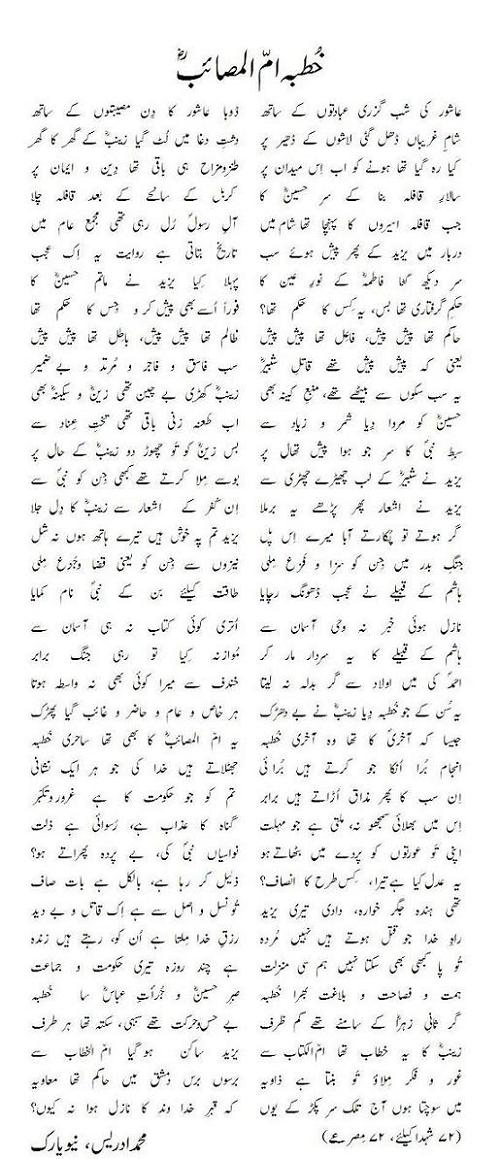 خُطبہ امّ المصائبؓ
عاشور کی شب گزری عبادتوں کے ساتھ ڈوبا عاشور کا دِن مصیبتوں کے ساتھ
شامِ غریباں ڈھل گئی لاشوں کے ڈھیر پر دشتِ دغا میں لُٹ گیا زینبؓ کے گھر کا گھر
کیا رہ گیا تھا ہونے کو اب اِس میدان پر طنزو مزاح ہی باقی تھا دِین و ایمان پر
سالارِ قافلہ بنا کے سر حسینؓ کا کربل کے سانحے کے بعد قافلہ چلا
جب قافلہ اسیروں کا پہنچا تھا شام میں آلِ رسولؐ رُل رہی تھی مجمعِ عام میں
دربار میں یزید کے پھر پیش ہوئے سب تاریخ بتاتی ہے روایت یہ اِک عجب
سر دیکھ کے فاطمہؓ کے نورِ عین کا پہلا کِیا یزید نے ماتم حسینؓ کا
حکمِ گرفتاری تھا بس، یہ کِس کا حکم تھا؟ فوراً اُسے بھی پیش کرو جِس کا حکم تھا
حاکم تھا پیش پیش، فاعِل تھا پیش پیش ظالم تھا پیش پیش، باطِل تھا پیش پیش
یعنی کہ پیش پیش تھے قاتلِ شبیرؓ سب فاسق و فاجر و مُرتد و بے ضمیر
یہ سب سکوں سے بیٹھے تھے، منبعِ کینہ بھی زینبؓ کھڑی بے چین تھی زینؓ و سکینہؓ بھی
حسینؓ کو مروا دِیا شمر و زیاد سے اب طعنہ زنی باقی تھی تختِ عناد سے
سبطِ نبیؐ کا سر جو ہوا پیش تھال پر بس زینؓ کو تو چھوڑ دو زینبؓ کے حال پر
یزید نے شبیرؓ کے لب چھیڑے چھڑی سے بوسے مِلا کرتے تھے کبھی جِن کو نبیؐ سے
یزید نے اشعار پھر پڑھے یہ برملا اِن کُفر کے اشعار سے زینبؓ کا دِل جلا
گر ہوتے تو پُکارتے آبا میرے اِس پل یزید تم پہ خوش ہیں تیرے ہاتھ ہوں نہ شل
جنگِ بدر میں جِن کو سزا و فزع مِلی نیزوں سے جِن کو یعنی قضا و جزع مِلی
ہاشم کے قبیلے نے عجب ڈھونگ رچایا طاقت کیلئے بن کے نبیؐ نام کمایا
نازل ہوئی خبر نہ وحی آسمان سے اُتری کوئی کتاب نہ ہی آسمان سے
ہاشم کے قبیلے کا یہ سردار مار کر مُوازنہ کِیا تو رہی جنگ برابر
احمدؐ کی میں اولاد سے گر بدلہ نہ لیتا خندف سے میرا کوئی بھی نہ واسطہ ہوتا
یہ سُن کے جو خُطبہ دِیا زینبؓ نے بے دھڑک ہر خاص و عام و حاضر و غائب گیا پھڑک
جیسا کہ آخریؐ کا تھا وہ آخری خُطبہ یہ امّ المصائبؓ کا بھی تھا ساحری خُطبہ
انجام بُرا اُنکا جو کرتے ہیں بُرائی جھٹلاتے ہیں خدا کی جو ہر ایک نشانی
اِن سب کا پھر مذاق اُڑاتے ہیں برابر تم کو جو حکومت کا ہے غرور و تکبّر
اِس میں بھلائی سمجھو نہ، ملتی ہے جو مہلت گناہ کا عذاب ہے، رُسوائی ہے ذلت
اپنی تو عورتوں کو پردے میں بٹھاتے ہو نواسیاں نبیؐ کی، بے پردہ پھراتے ہو؟
یہ عدل کیا ہے تیرا، کِس طرح کا انصاف؟ ذلیل کر رہا ہے، بالکل ہے بات صاف
تھی ہندہ جگر خوارہ، دادی تیری یزید تُو نسل و اصل سے ہے اِک قاتل و بے دید
راہِ خدا جو قتل ہوتے ہیں نہیں مُردہ رزقِ خدا مِلتا ہے اُن کو، رہتے ہیں زندہ
تُو پا کبھی بھی سکتا نہیں ہم سی منزلت ہے چند روزہ تیری حکومت و جماعت
ہمت و فصاحت و بلاغت بھرا خُطبہ صبرِ حسینؓ و جُرأتِ عباسؓ سا خُطبہ
گر ثانیِ زہراؓ کے سامنے تھے کم ظرف بے حس و حرکت تھے سبھی، سکتہ تھا ہر طرف
زینبؓ کا یہ خطاب تھا امّ الکتاب سے یزید ساکن ہو گیا امّ الخطاب سے
غور و فکر مِلاؤ تو بنتا ہے ذاویہ برسوں برس دمشق میں حاکم تھا معاویہ
میں سوچتا ہوں آج تلک سر پکڑ کے یوں کہ قہر خدا وند کا نازل ہوا نہ کیوں؟
(۷۲ شہدا کیلئے، ۷۲ مِصرعے) محمد ادریس، نیویارک